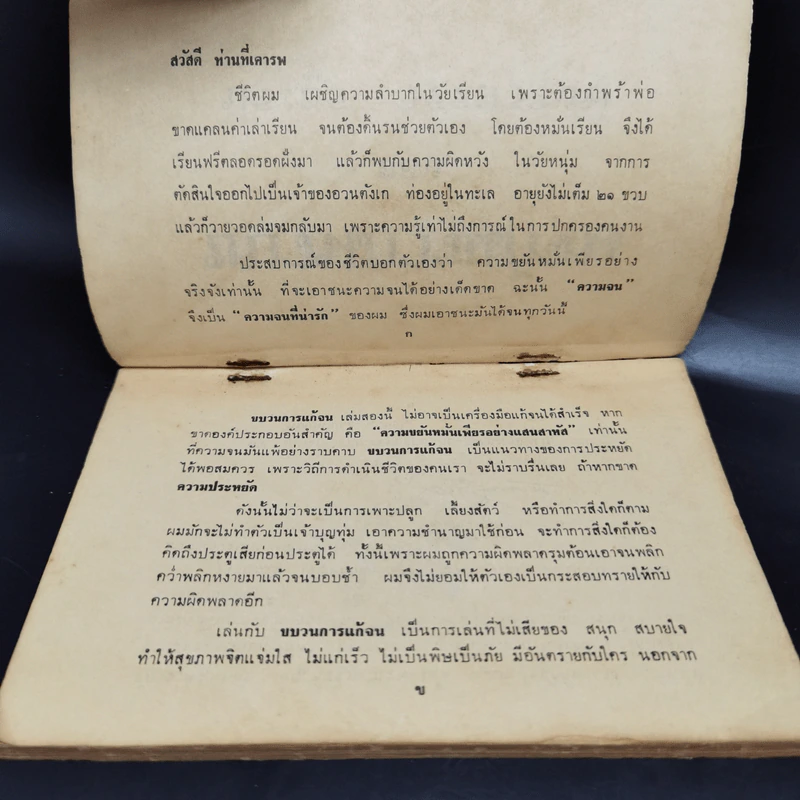 สวัสดี ท่านที่เคารพ
ชีวิตผม เผชิญความลำบากในวัยเรียน เพราะต้องกำพร้าพ่อ
ขาดแคลนค่าเล่าเรียน จนต้องดิ้นรนช่วยตัวเอง โดยต้องหมั่นเรียน จึงได้
เรียนฟรีตลอดรอดฝั่งมา แล้วก็พบกับความผิดหวัง ในวัยหนุ่ม จากการ
ตัดสินใจออกไปเป็นเจ้าของอวนตังเก ท่องอยู่ในทะเล อายุยังไม่เต็ม ๒๑ ขวบ
แล้วก็วายวอดล่มจมกลับมา เพราะความรู้เท่าไม่ถึงการณ์ ในการปกครองคนงาน
ประสบการณ์ของชีวิตบอกตัวเองว่า ความขยันหมั่นเพียรอย่าง
จริงจังเท่านั้น ที่จะเอาชนะความจนได้อย่างเด็ดขาด ฉะนั้น “ความจน”
จึงเป็น “ความจนที่น่ารัก” ของผม ซึ่งผมเอาชนะมันได้จนทุกวันนี้
ก
ขบวนการแก้จน เล่มสองนี้ ไม่อาจเป็นเครื่องมือแก้จนได้สำเร็จ หาก
ขาดองค์ประกอบอันสำคัญ คือ “ความขยันหมั่นเพียรอย่างแสนสาหัส” เท่านั้น
ที่ความจนมันแพ้อย่างราบคาบ ขบวนการแก้จน เป็นแนวทางของการประหยัด
ได้พอสมควร เพราะวิถีการดำเนินชีวิตของคนเรา จะไม่ราบรื่นเลย ถ้าหากขาด
ความประหยัด
ดังนั้นไม่ว่าจะเป็นการเพาะปลูก เลี้ยงสัตว์ หรือทำการสิ่งใดก็ตาม
ผมมักจะไม่ทำตัวเป็นเจ้าบุญทุ่ม เอาความชำนาญมาใช้ก่อน จะทำการสิ่งใดก็ต้อง
คิดถึงประตูเสียก่อนประตูได้ ทั้งนี้เพราะผมถูกความผิดพลาดรุมต้อนเอาจนพลิก
คว่ำพลิกหงายมาแล้วจนบอบช้ำ ผมจึงไม่ยอมให้ตัวเองเป็นกระสอบทรายให้กับ
ความผิดพลาดอีก
เล่นกับ ขบวนการแก้จน เป็นการเล่นที่ไม่เสียของ สนุก สบายใจ
ทำให้สุขภาพจิตแจ่มใส ไม่แก่เร็ว ไม่เป็นพิษเป็นภัย มีอันตรายกับใคร นอกจาก
ข